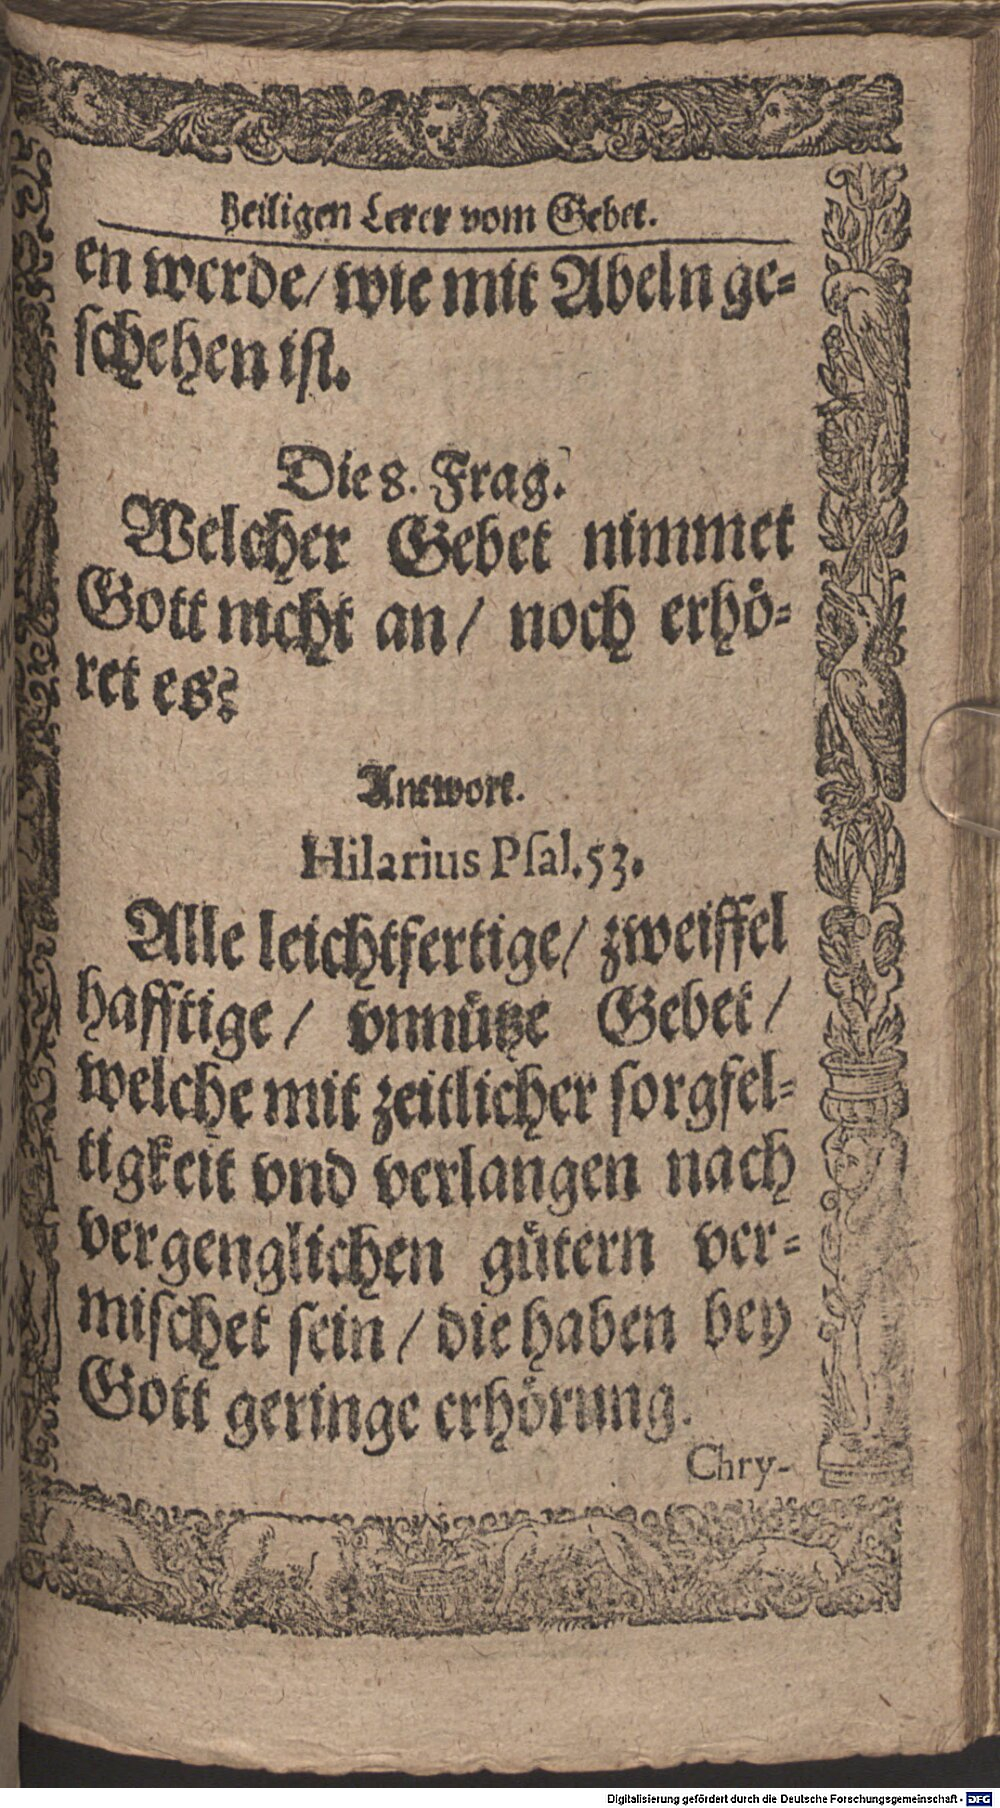 Heiligen Lerer vom Gebet.
en werde/ wie mit Abeln ge-
schehen ist.
Die 8. Frag.
Welcher Gebet nimmet
Gott nicht an/ noch erhö-
ret es?
Antwort.
Hilarius Psal. 53.
Alle leichtfertige/ zweiffel
hafftige/ vnnütze Gebet/
welche mit zeitlicher sorgfel-
tigkeit vnd verlangen nach
vergenglichen gütern ver-
mischet sein/ die haben bey
Gott geringe erhörung.
Chry-
Digitalisierung gefördert durch die Deutsche Forschungsgemeinschaft - DFG